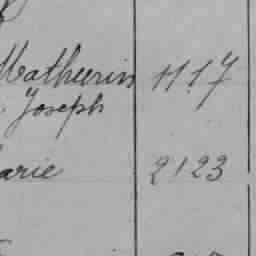 Mathurin 1117
Joseph
arie 2123